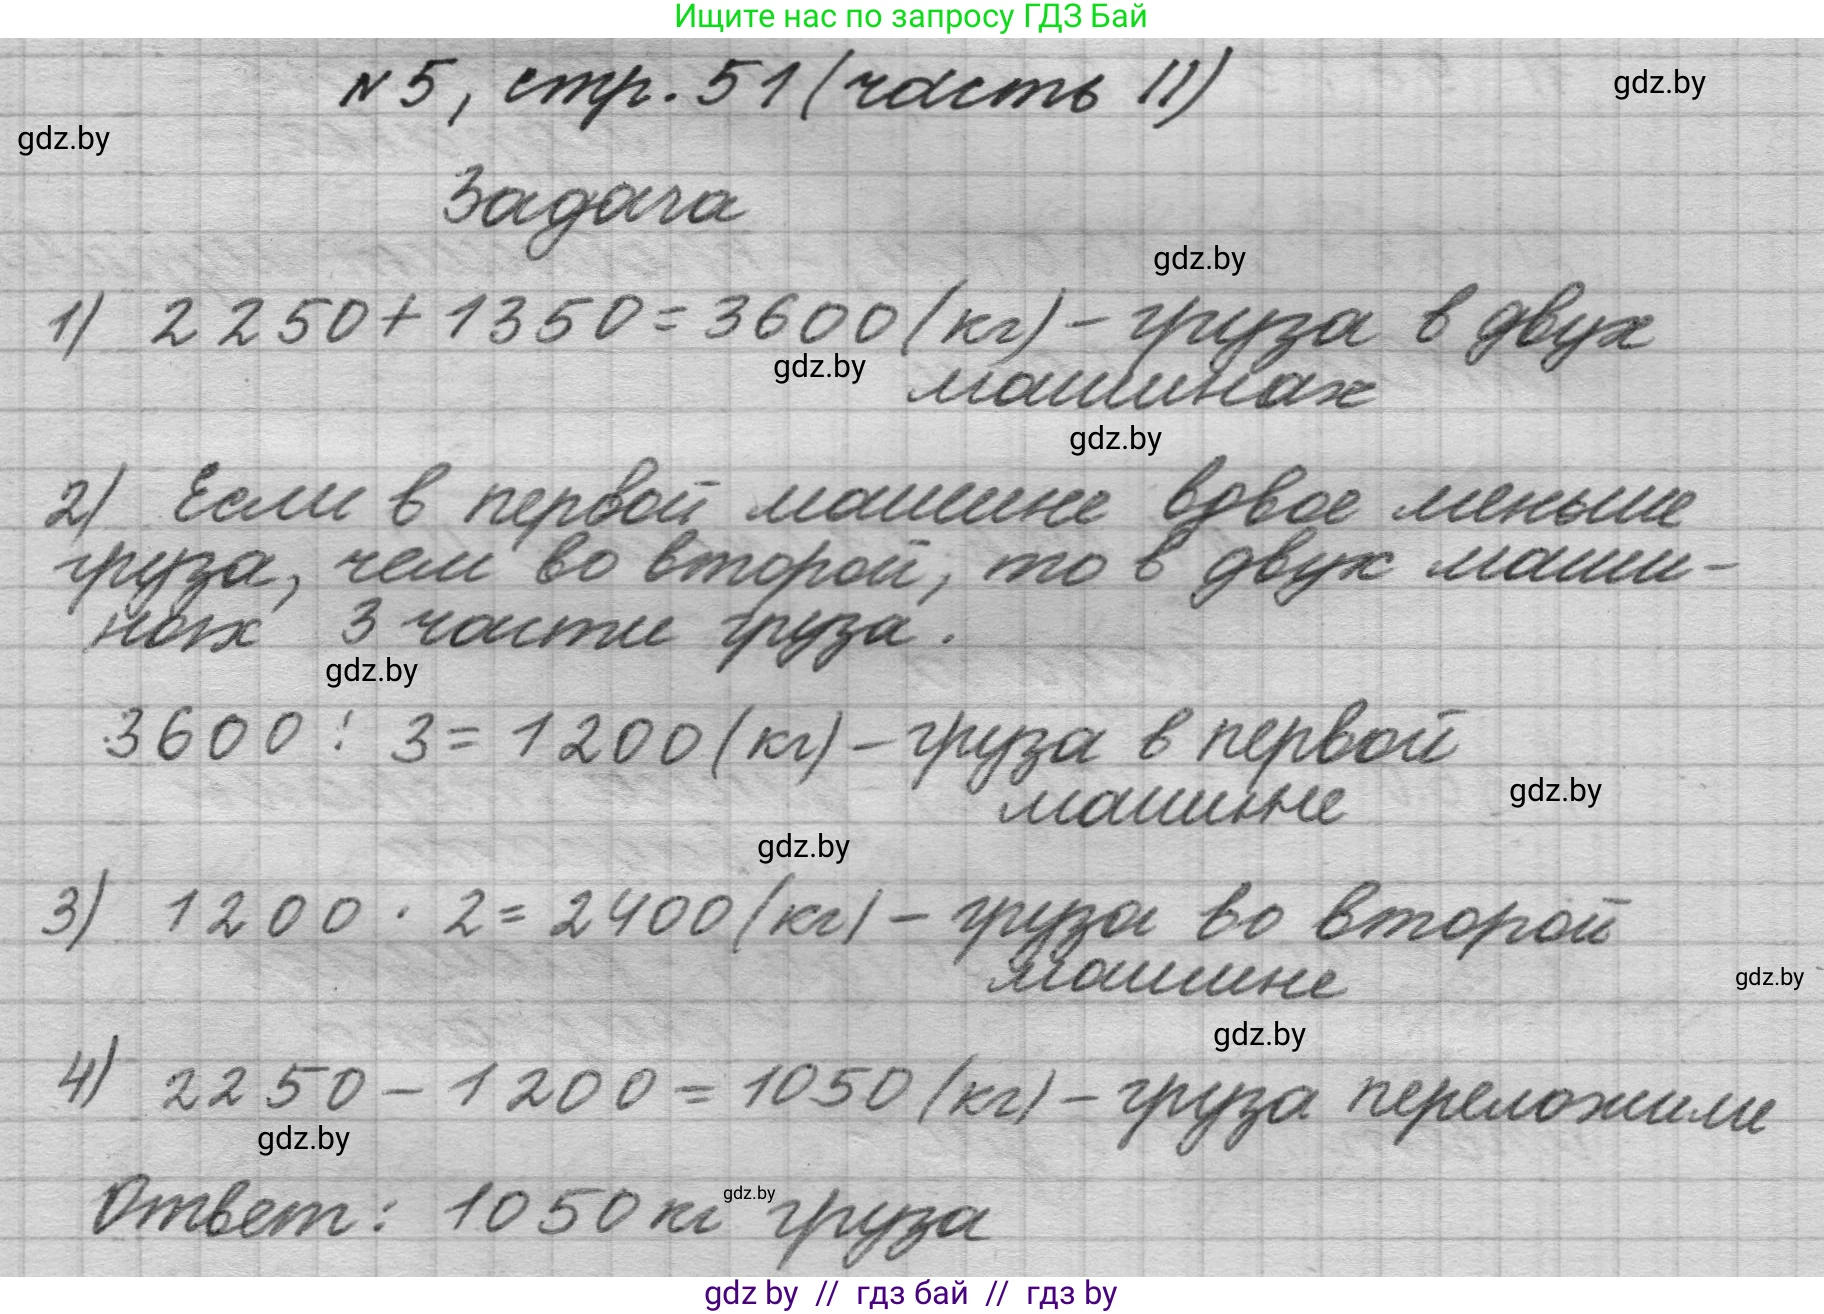 Ищите нас по запросу ГДЗ Бай
№5, стр. 51 (часть II)
gdz.by
gdz.by
Задача
gdz.by
1) 2250 + 1350 = 3600 (кг) – груза в двух
gdz.by
машинах
gdz.by
2) Если в первой машине вдвое меньше
груза, чем во второй, то в двух маши-
нах 3 части груза.
gdz.by
3600 : 3 = 1200 (кг) – груза в первой
машине
gdz.by
gdz.by
3) 1200 · 2 = 2400 (кг) – груза во второй
машине
gdz.by
gdz.by
4) 2250 – 1200 = 1050 (кг) – груза переложили
gdz.by
Ответ: 1050 кг груза
gdz.by
gdz by // гдз бай // гдз by